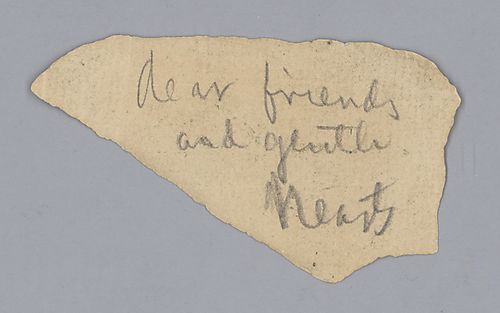 dear friends
and gentle
Hearts